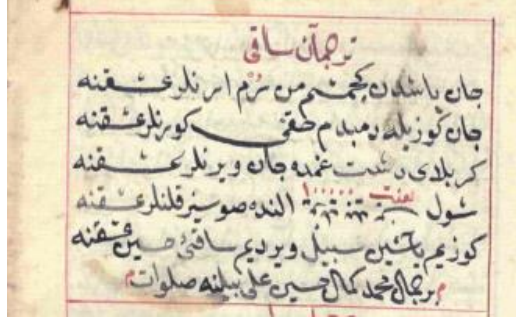 ترجمان ساقی
جان باشدن کچمشم من سرم ایرنلر عشقنه
جان کوزیله دمبدم حقی کورنلر عشقنه
کربلای دشت غمده جان ویرنلر عشقنه
لعنت ١٠٠٠٠٠
شول النده صوسیز قلنلر عشقنه
کوزیم یاشین سبیل ویردیم ساقئ حسین عشقنه
بر جمال محمد کمال حسین علی بیلنه صلوات